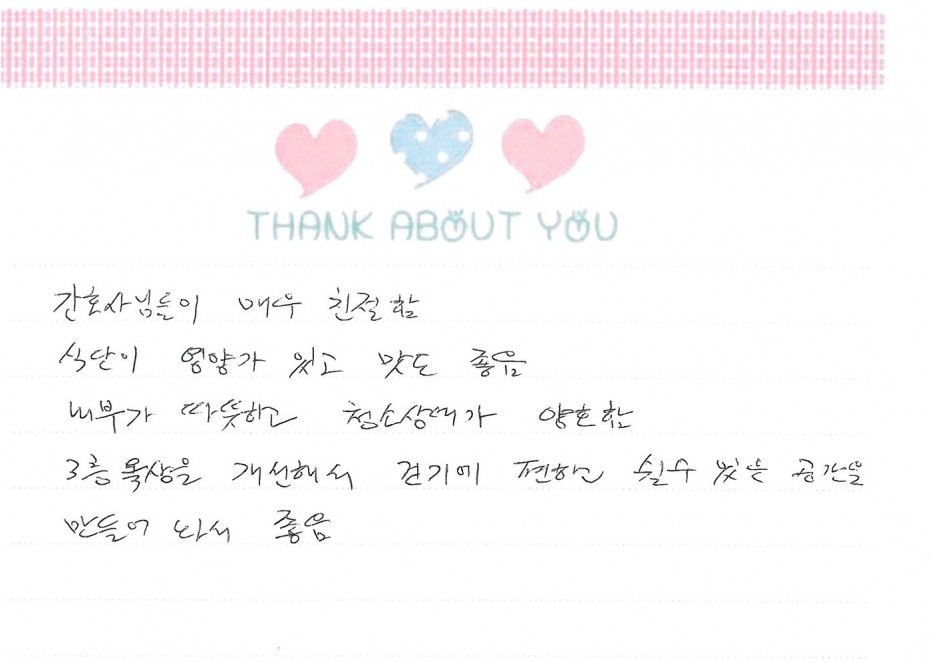 THANK ABOUT YOU
간호사님들이 매우 친절함
식단이 영양가 있고 맛도 좋음
내부가 따뜻하고 청소상태가 양호함
3층 옥상을 개선해서 걷기에 편하고 쉴수 있는 공간을
만들어 놔서 좋음